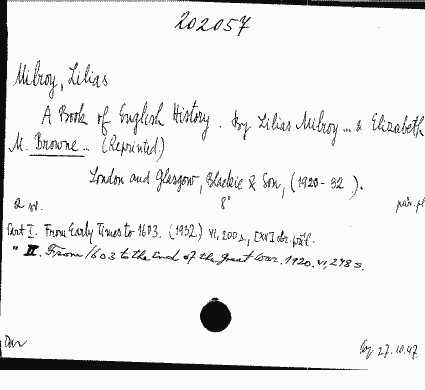 202057
Milroy, Lilias
A Book of English History. By Lilias Milroy... & Elizabeth
M. Browne... (Reprinted)
London and Glasgow, Blackie & Son, (1920-32).
8°
2 vol.
Part I. From Early Times to 1603. (1932) VI, 200 s., [XVI]
" II. From 1603 to the End of the Great War. 1920. VI, 248 s.
27.10.47.